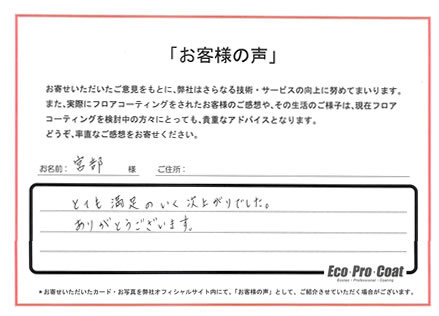 「お客様の声」
お寄せいただいたご意見をもとに、弊社はさらなる技術・サービスの向上に努めてまいります。
また、実際にフロアコーティングをされたお客様のご感想や、その生活のご様子は、現在フロア
コーティングを検討中の方々にとっても、貴重なアドバイスとなります。
どうぞ、率直なご感想をお寄せください。
お名前： 宮部 様 ご住所：
とても満足のいく仕上がりでした。
ありがとうございます。
Eco・Pro・Coat
Ecolex - Professional - Coating
＊お寄せいただいたカード・お写真を弊社オフィシャルサイト内にて、「お客様の声」として、ご紹介させていただく場合がございます。